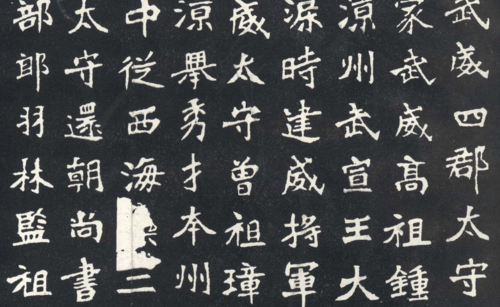 武威四郡太守
家武威高祖鍾
涼州武宣王大
渠時建威將軍
威太守曾祖璋
涼舉秀才本州
中從西海二
太守還朝尚書
部郎羽林監祖